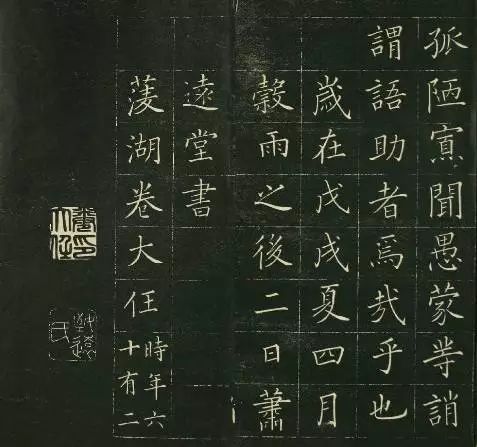 孤陋寡聞愚蒙等誚
謂語助者焉哉乎也
歲在戊戌夏四月
穀雨之後二日蕭
遠堂書
菱湖卷大任時年六十有二